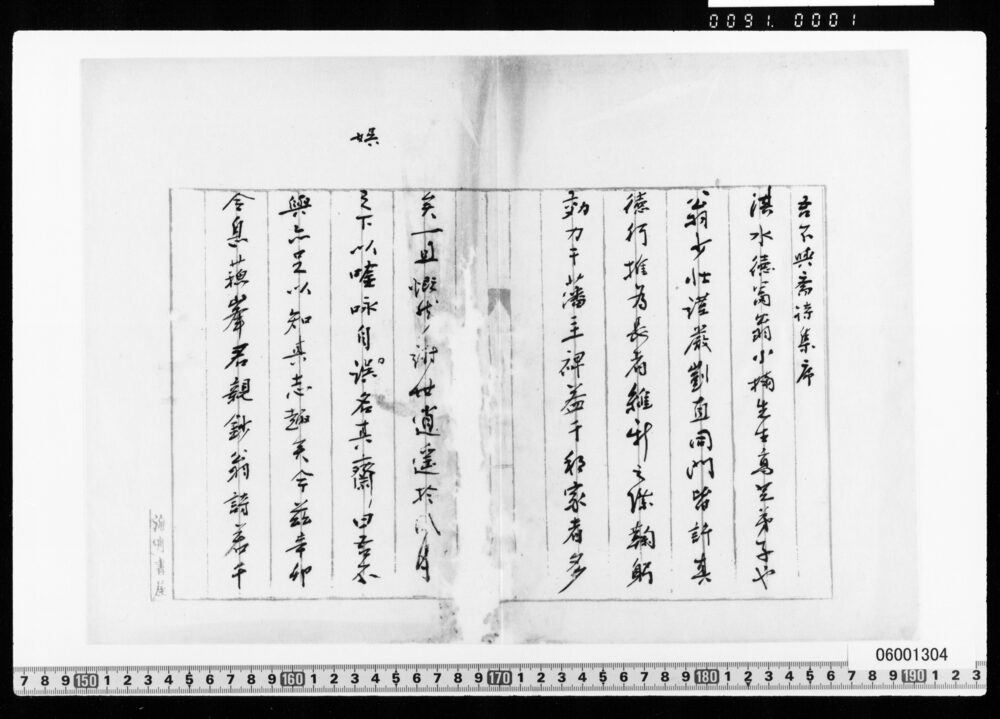 0091.0001
吾不與齋詩集序
淇水德富翁小楠先生高足弟子也
翁少壯謹嚴剴直同門皆許其
德行推為長者維新之際鞠躬
効力于藩主裨益于邦家者多
矣一旦慨然謝世逍遙於風月
之下以嘘咏自誤名其齋曰吾不
娯
與亦足以知其志趣矣今茲辛卯
令息蘇峯君親鈔翁詩若干
06001304
7 8 9 150 1 2 3 4 5 6 7 8 9 160 1 2 3 4 5 6 7 8 9 170 1 2 3 4 5 6 7 8 9 180 1 2 3 4 5 6 7 8 9 190 1 2 3